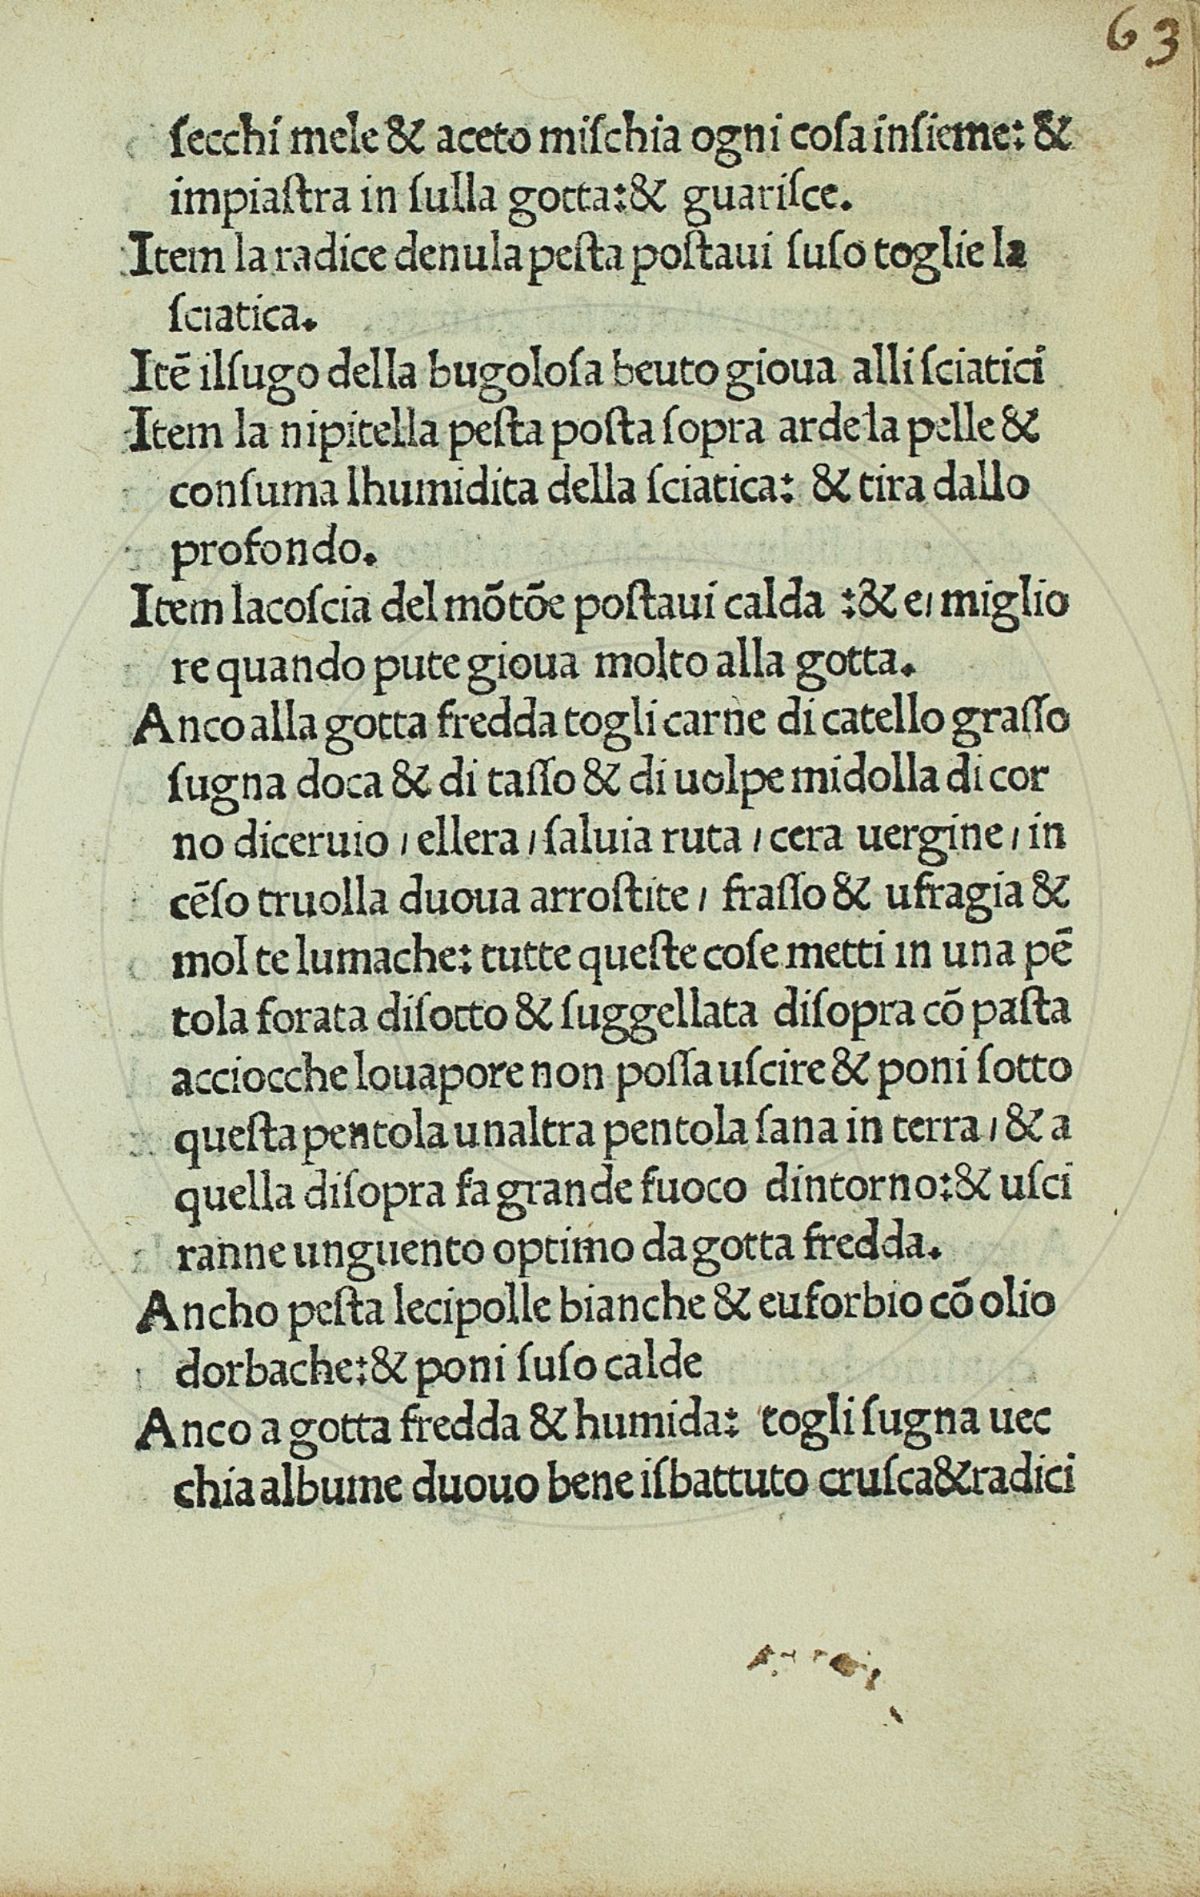 63
ſecchi mele & aceto miſchia ogni coſa inſieme: &
impiaſtra in ſulla gotta:& guariſce.
Item la radice denula peſta poſtaui ſuſo toglie la
ſciatica.
Itē ilſugo della bugoloſa beuto gioua alli ſciatici
Item la nipitella peſta poſta ſopra arde la pelle &
conſuma lhumidita della ſciatica: & tira dallo
profondo.
Item lacoſcia del mōtōe poſtaui calda :& e/ miglio
re quando pute gioua molto alla gotta.
Anco alla gotta fredda togli carne di catello graſſo
ſugna doca & di taſſo & di uolpe midolla di cor
no diceruio / ellera / ſaluia ruta / cera uergine / in
cēſo truolla duoua arroſtite / fraſſo & ufragia &
mol te lumache: tutte queſte coſe metti in una pē
tola forata diſotto & ſuggellata diſopra cō paſta
acciocche louapore non poſſa uſcire & poni ſotto
queſta pentola unaltra pentola ſana in terra / & a
quella diſopra fa grande fuoco dintorno:& uſci
ranne unguento optimo da gotta fredda.
Ancho peſta lecipolle bianche & euforbio cō olio
dorbache:& poni ſuſo calde
Anco a gotta fredda & humida: togli ſugna uec
chia albume duouo bene iſbattuto cruſca&radici